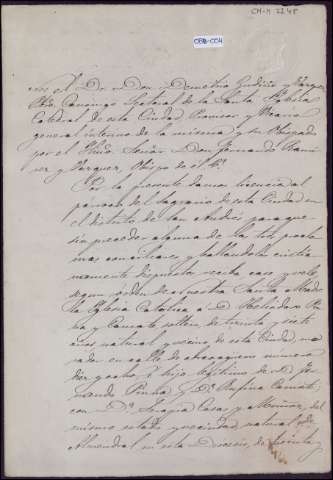 CM-M 22.45
OBB-004
Nos el Dr. Don Demetrio Gudicio y Marquez
Pbro. Canonigo Lectoral de la Santa Iglesia
Catedral de esta Ciudad Provisor y Vicario
general interino de la misma y su Obispado
por el Ilmo. Señor Don Fernando Rami
rez y Vazquez, Obispo de él &a.
Por la presente damos licencia al
párroco del Sagrario de esta Ciudad en
el distrito de San Andrés para que
sin preceder alguna de las tres procla
mas conciliares y hallandolos cristia
namente dispuestos reciba case y vele,
segun orden de nuestra Santa Madre
la Iglesia Catolica a D. Heliodoro Pin
na y Camato soltero de treinta y siete
años natural y vecino de esta Ciudad, mo
rador en calle de numero
diez y ocho é hijo legitimo de D. Fer
nando Pinna y Da. Rufina Camato,
con Da. Casas y Muñoz, del
mismo estado y vecindad natural de
Almendral en esta Diocesis, de treinta y